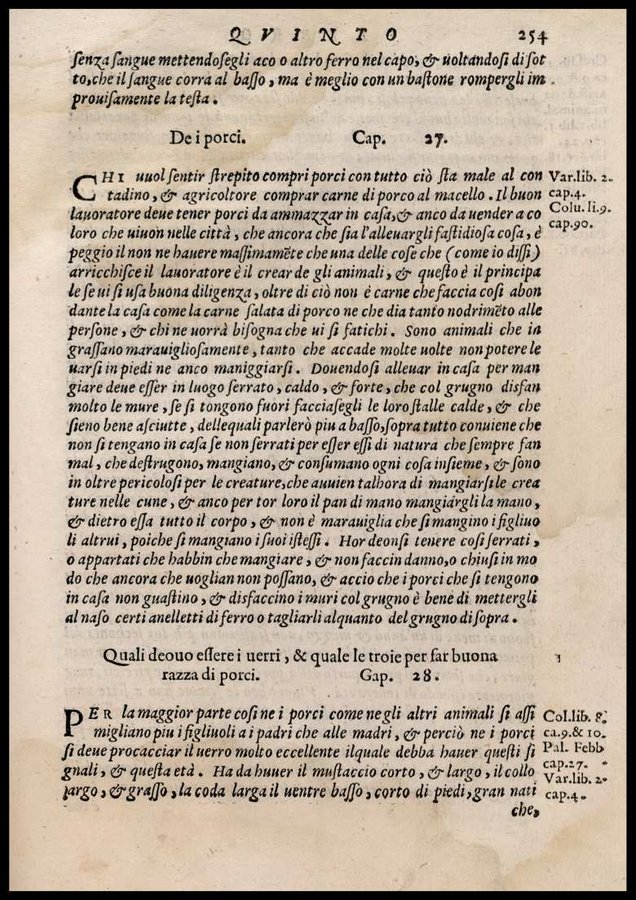 QVINTO 254
senza sangue mettendosegli aco o altro ferro nel capo, & uoltandosi di sot
to, che il sangue corra al basso, ma è meglio con un bastone rompergli im
prouisamente la testa.
De i porci. Cap. 27.
CHI uuol sentir strepito compri porci con tutto ciò sta male al con
tadino, & agricoltore comprar carne di porco al macello. Il buon
lauoratore deue tener porci da ammazzar in casa, & anco da uender a co
loro che uiuon nelle città, che ancora che sia l'alleuargli fastidiosa cosa, è
peggio il non ne hauere massimamẽte che una delle cose che (come io dissi)
arricchisce il lauoratore è il crear de gli animali, & questo è il principa
le se ui si usa buona diligenza, oltre di ciò non è carne che faccia cosi abon
dante la casa come la carne salata di porco ne che dia tanto nodrimẽto alle
persone, & chi ne uorrà bisogna che ui si fatichi. Sono animali che in
grassano marauigliosamente, tanto che accade molte uolte non potere le
uarsi in piedi ne anco maniggiarsi. Douendosi alleuar in casa per man
giare deue esser in luogo serrato, caldo, & forte, che col grugno disfan
molto le mure, se si tengono fuori facciasegli le loro stalle calde, & che
sieno bene asciutte, dellequali parlerò piu a basso, sopra tutto conuiene che
non si tengano in casa se non serrati per esser essi di natura che sempre fan
mal, che destrugono, mangiano, & consumano ogni cosa insieme, & sono
in oltre pericolosi per le creature, che auuien talhora di mangiarsile crea
ture nelle cune, & anco per tor loro il pan di mano mangiargli la mano,
& dietro essa tutto il corpo, & non è marauiglia che si mangino i figliuo
li altrui, poiche si mangiano i suoi istessi. Hor deonsi tenere cosi serrati,
o appartati che habbin che mangiare, & non faccin danno, o chiusi in mo
do che ancora che uoglian non possano, & accio che i porci che si tengono
in casa non guastino, & disfaccino i muri col grugno è bene di mettergli
al naso certi anelletti di ferro o tagliarli alquanto del grugno di sopra.
Var. lib. 2.
cap. 4.
Colu. li. 9.
cap. 90.
Quali deouo essere i uerri, & quale le troie per far buona
razza di porci. Gap. 28.
PER la maggior parte cosi ne i porci come negli altri animali si assi
migliano piu i figliuoli a i padri che alle madri, & perciò ne i porci
si deue procacciar il uerro molto eccellente ilquale debba hauer questi si
gnali, & questa età. Ha da huuer il mustaccio corto, & largo, il collo
largo, & grasso, la coda larga il uentre basso, corto di piedi, gran nati
che,
Col. lib. 8.
ca. 9. & 10.
Pal. Febb
cap. 27.
Var. lib. 2.
cap. 4.